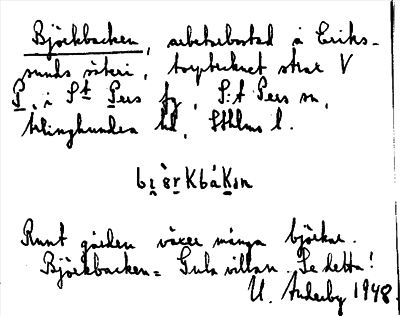 Björkbacken, arbetarbostad å Eriks-
sunds säteri, torptecknet strax V
P, i S:t Pers fg, S:t Pers sn,
Erlinghundra hd, Sthlms l.
Runt gården växer många björkar.
Björkbacken = Gula villan. Se detta!
U. Anderby 1948.